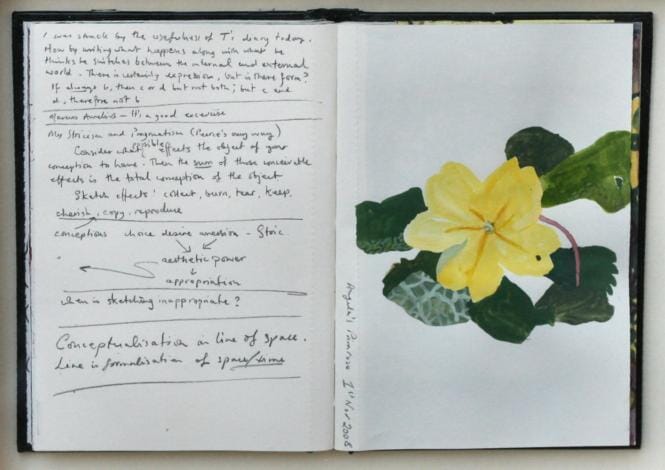 I was struck by the usefulness of T's diary today.
How by writing what happens along with what he
thinks he switches between the internal and external
world. There is certainly depression, but is there form?
If always b, then c or d but not both; but c and
d, therefore not b
Marcus Aurelius - It's a good excercise
My Stoicism and Pragmatism (Peirce's way)
Consider what possible effects the object of your
conception to have. Then the sum of those conceivable
effects is the total conception of the object
Sketch effects: collect, burn, tear, keep,
cherish, copy, reproduce
conceptions choice desire aversion - Stoic
aesthetic power
appropriation
when is sketching inappropriate?
Conceptualisation in line of space.
Line is formalisation of space/time
Angela's Primrose 1st Nov 2008